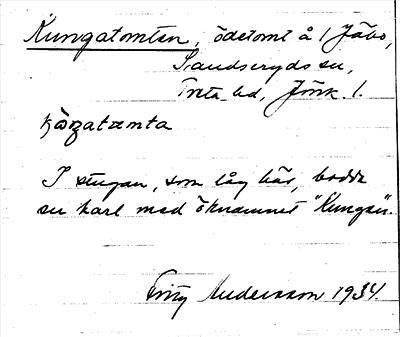 Kungatomten, ödetomt å 1 Jäbo,
Sandseryds sn,
Tveta hd, Jönk. l.
kàŋatæmta
I stugan, som låg här, bodde
en karl med öknamnet "Kungen".
Fritz Andersson 1934.